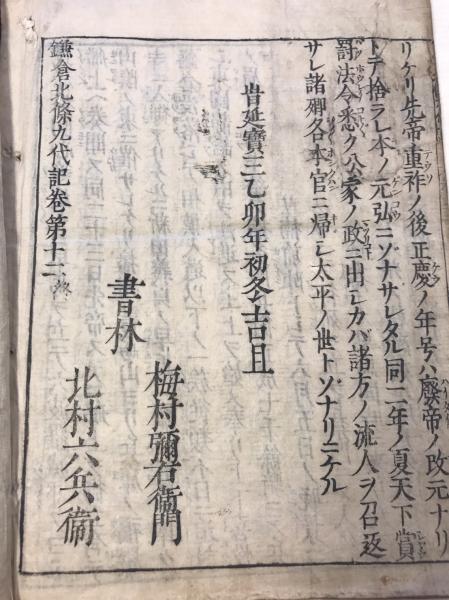 リケリ先帝重祚ノ後正慶ノ年号ハ廢帝ノ改元ナリ
トテ捨ラレ本ノ元弘ニゾナサレタル同二年ノ夏天下賞
罸法令悉ク公家ノ政ニ出シカバ諸方ノ流人ヲ召返
サレ諸卿各本官ニ帰シ太平ノ世トゾナリニケル
昔延寳三乙卯年初冬吉旦
書林
梅村彌右衛門
北村六兵衛
鎌倉北條九代記卷第十二終